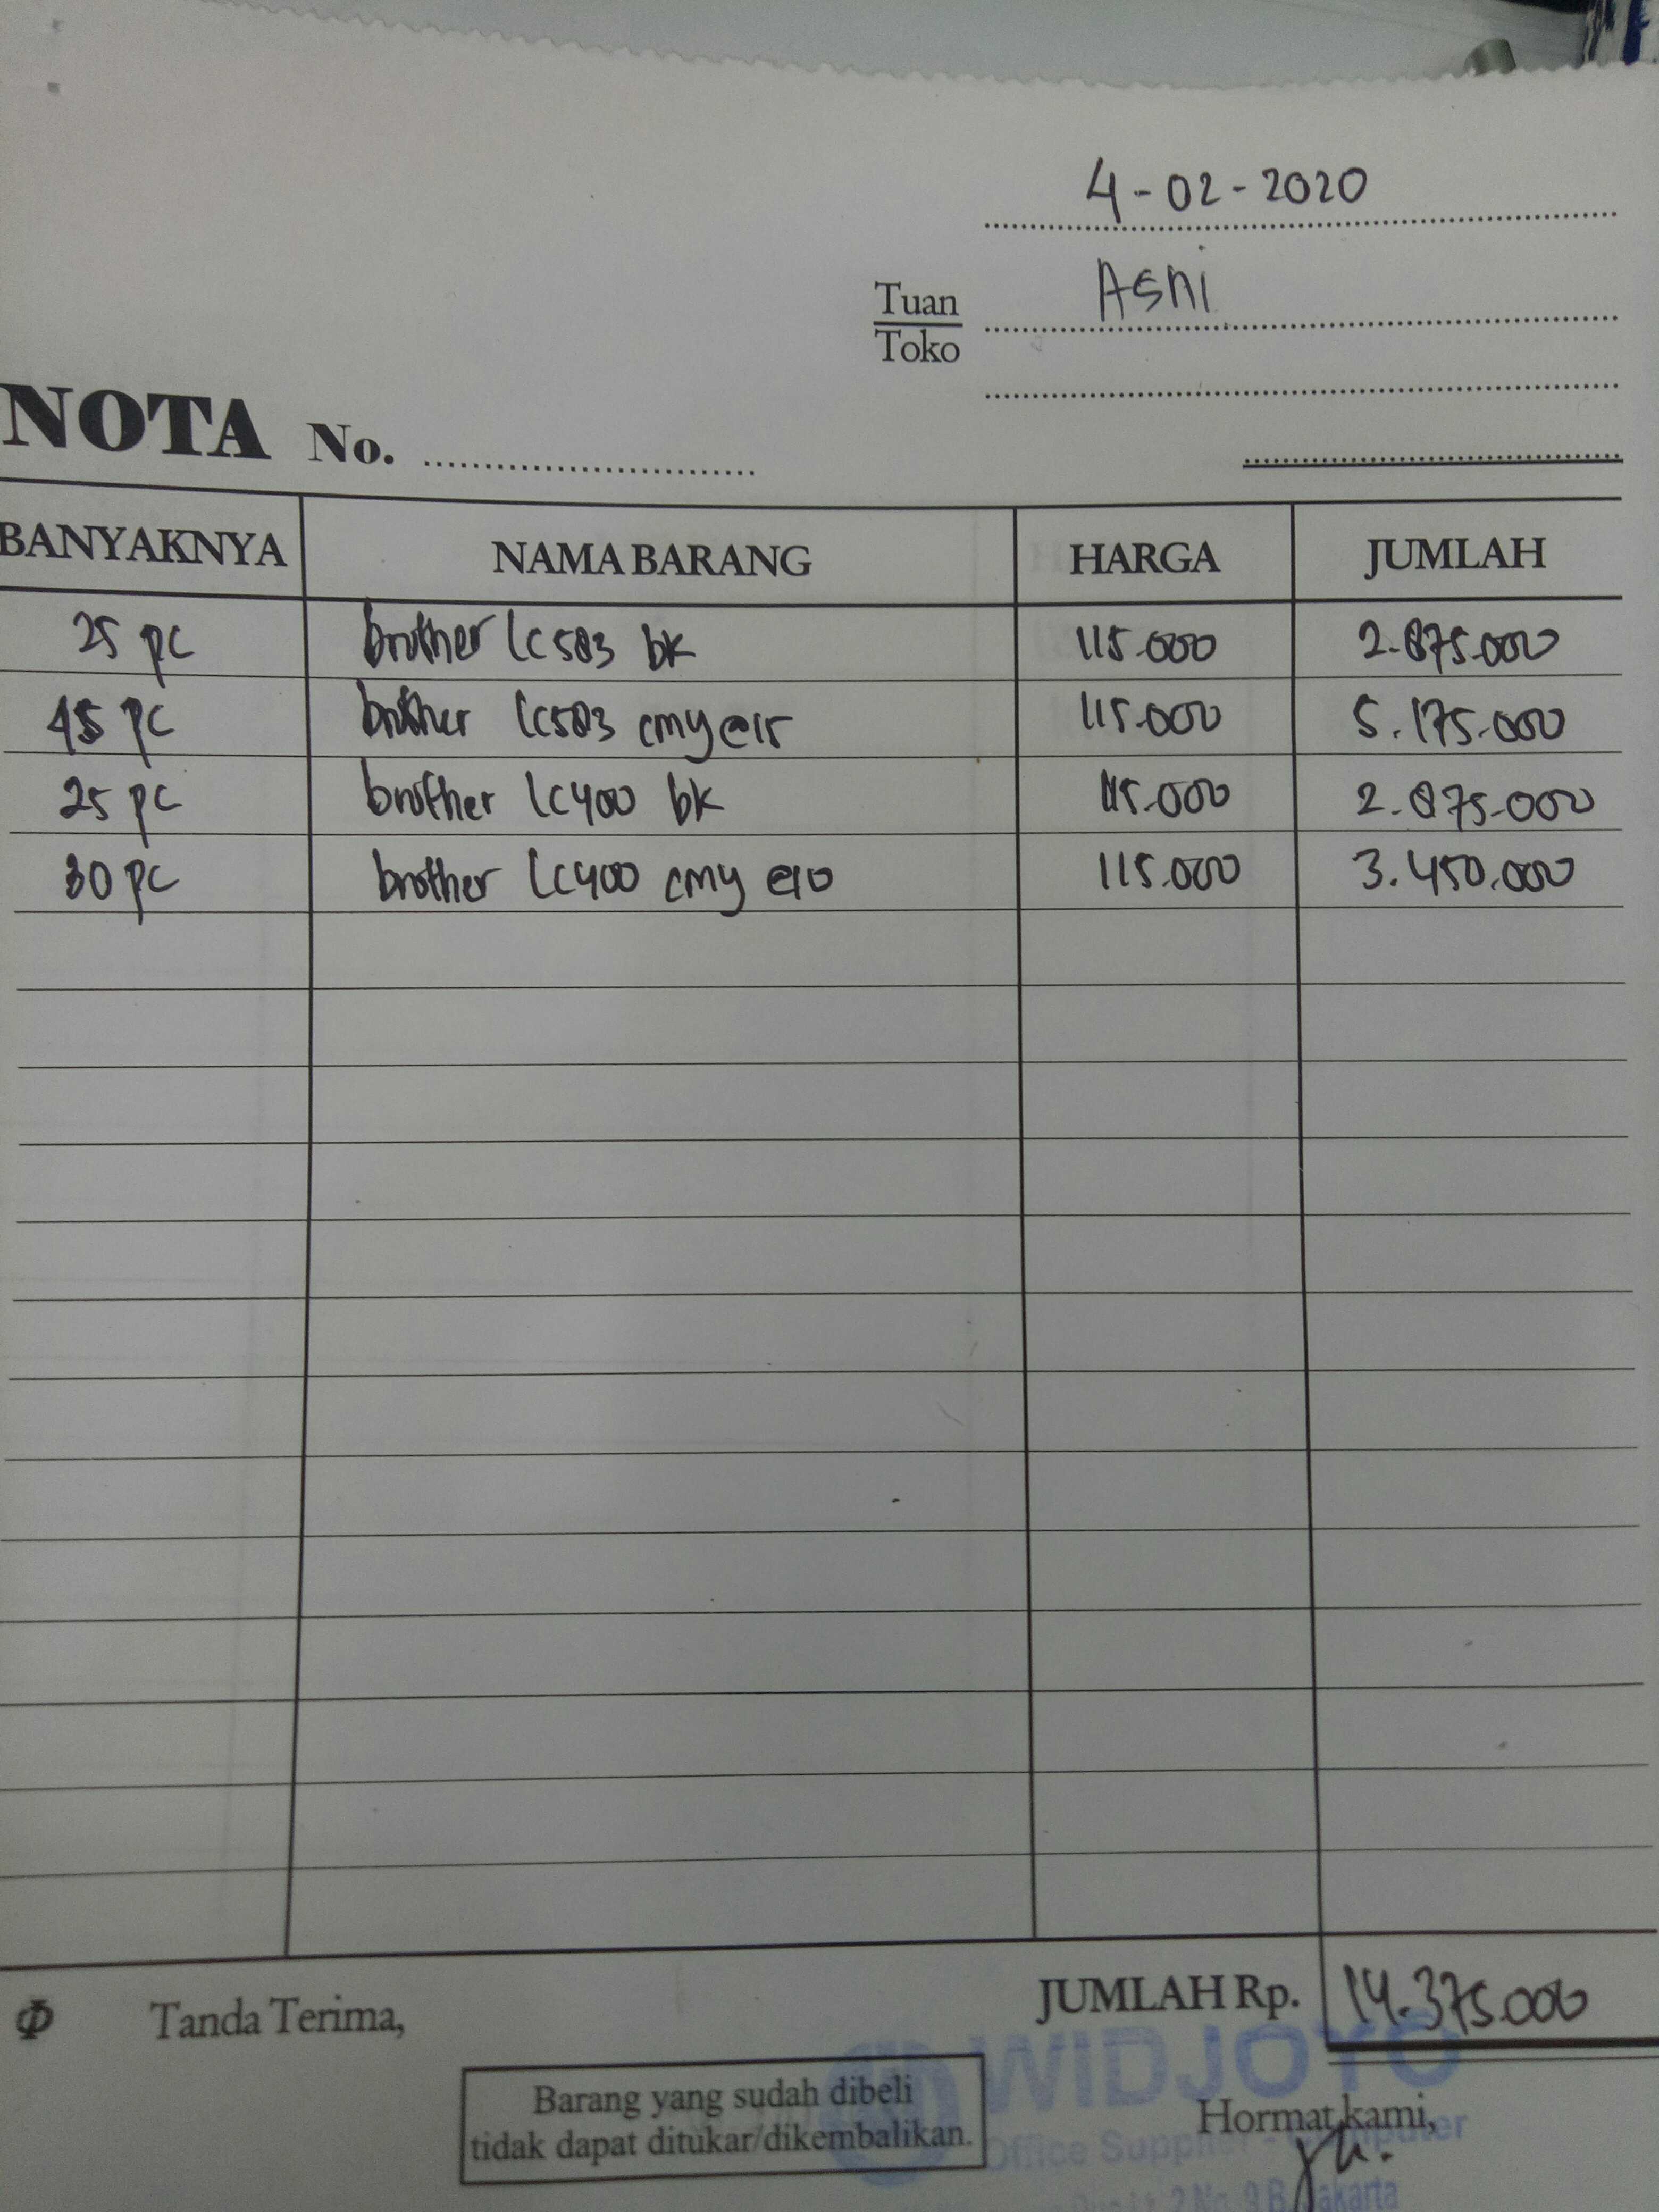 4-02-2020
Tuan Asni
Toko
NOTA No.
BANYAKNYA NAMA BARANG HARGA JUMLAH
25 pc brother lc583 bk 115.000 2.875.000
45 pc brother lc583 cmy @15 115.000 5.175.000
25 pc brother lc400 bk 115.000 2.875.000
30 pc brother lc400 cmy @10 115.000 3.450.000
Tanda Terima, JUMLAH Rp. 14.375.000
WIDJOYO
Barang yang sudah dibeli
tidak dapat ditukar/dikembalikan.
Hormat kami,
Office Supplier - Computer
Lt. 2 No. 9 B, Jakarta